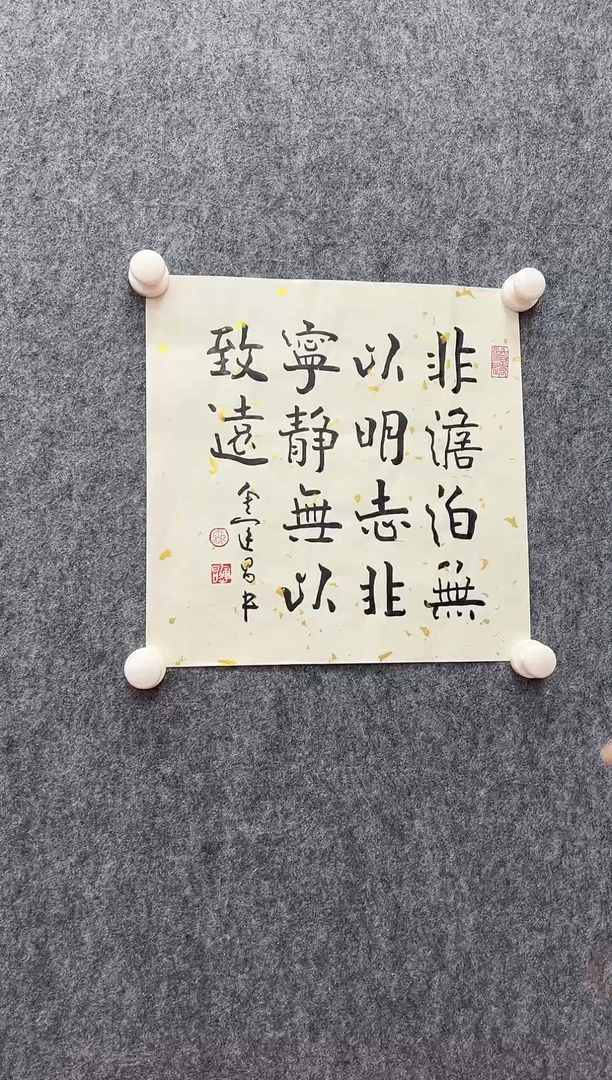 非澹泊無
以明志非
寧靜無以
致遠
金運昌书